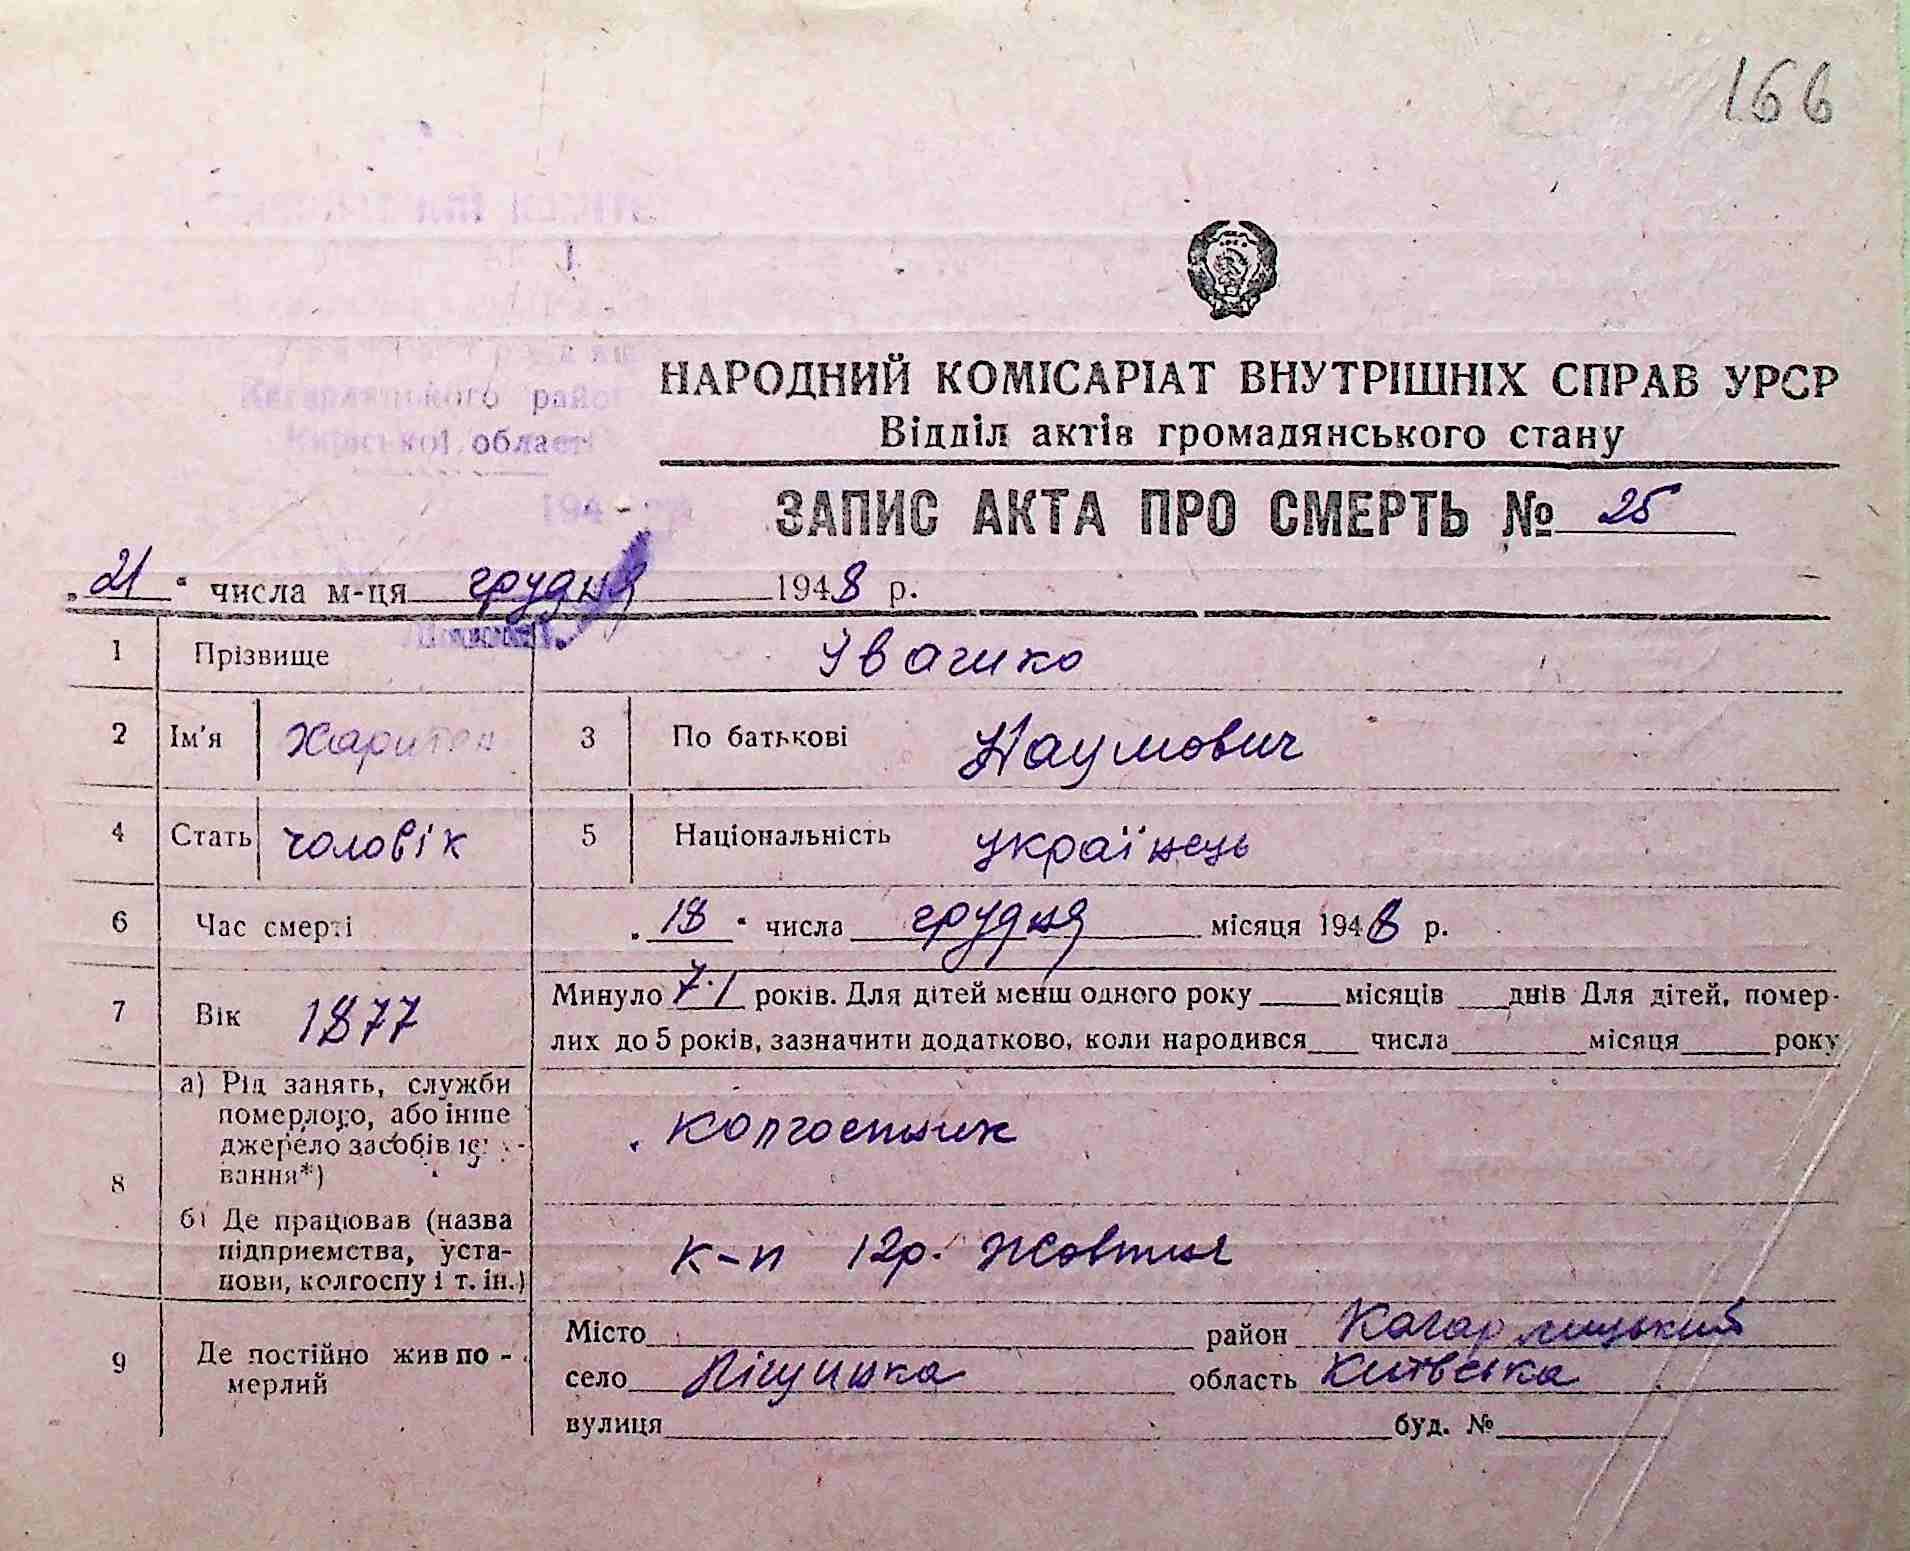 166
району
Київської області
194
НАРОДНИЙ КОМІСАРІАТ ВНУТРІШНІХ СПРАВ УРСР
Відділ актів громадянського стану
ЗАПИС АКТА ПРО СМЕРТЬ № 25
„21“ числа м-ця грудня 1948 р.
1 Прізвище Iващко
2 Ім'я Харитон 3 По батькові Наумович
4 Стать чоловік 5 Національність українець
6 Час смерті „18“ числа грудня місяця 1948 р.
7 Вік 1877 Минуло 71 років. Для дітей менш одного року місяців днів Для дітей, помер-
лих до 5 років, зазначити додатково, коли народився числа місяця року
8 а) Рід занять, служби
померлого, або інше
джерело засобів існу-
вання*)
колгоспник
б) Де працював (назва
підприємства, уста-
нови, колгоспу і т. ін.)
к-п 12р. Жовтня
9 Де постійно жив по-
мерлий
Місто район Кагарлицький
село область Київська
вулиця буд. №